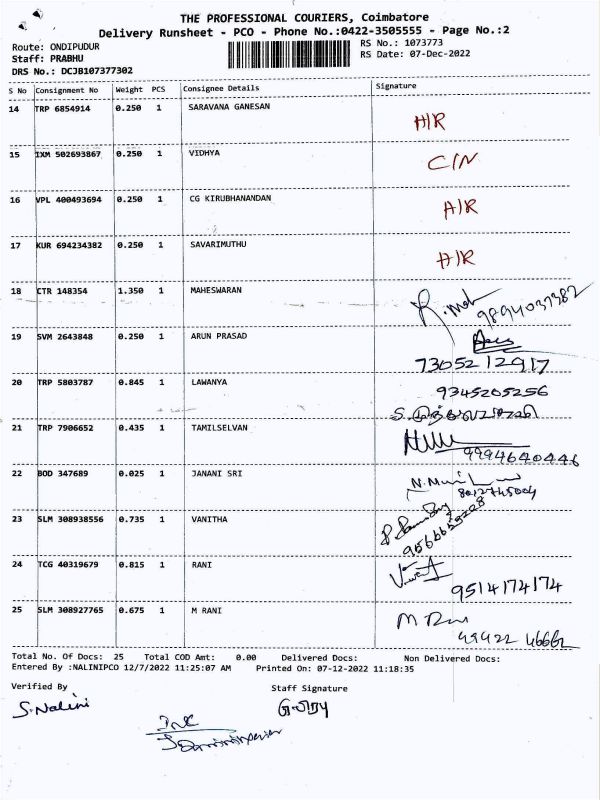 THE PROFESSIONAL COURIERS, Coimbatore
Delivery Runsheet - PCO - Phone No.:0422-3505555 - Page No.:2
Route: ONDIPUDUR
Staff: PRABHU
DRS No.: DCJB107377302
RS No.: 1073773
RS Date: 07-Dec-2022
S No Consignment No Weight PCS Consignee Details Signature
14 TRP 6854914 0.250 1 SARAVANA GANESAN H/R
15 IXM 502693867 0.250 1 VIDHYA C/N
16 VPL 400493694 0.250 1 CG KIRUBHANANDAN A/R
17 KUR 694234382 0.250 1 SAVARIMUTHU H/R
18 CTR 148354 1.350 1 MAHESWARAN 9894037382
19 SVM 2643848 0.250 1 ARUN PRASAD
7305212917
20 TRP 5803787 0.845 1 LAWANYA 9345205256
21 TRP 7906652 0.435 1 TAMILSELVAN
9994640446
22 BOD 347689 0.025 1 JANANI SRI
23 SLM 308938556 0.735 1 VANITHA
24 TCG 40319679 0.815 1 RANI
9514174174
25 SLM 308927765 0.675 1 M RANI
Total No. Of Docs: 25 Total COD Amt: 0.00 Delivered Docs: Non Delivered Docs:
Entered By :NALINIPCO 12/7/2022 11:25:07 AM Printed On: 07-12-2022 11:18:35
Verified By Staff Signature
S.Nalini